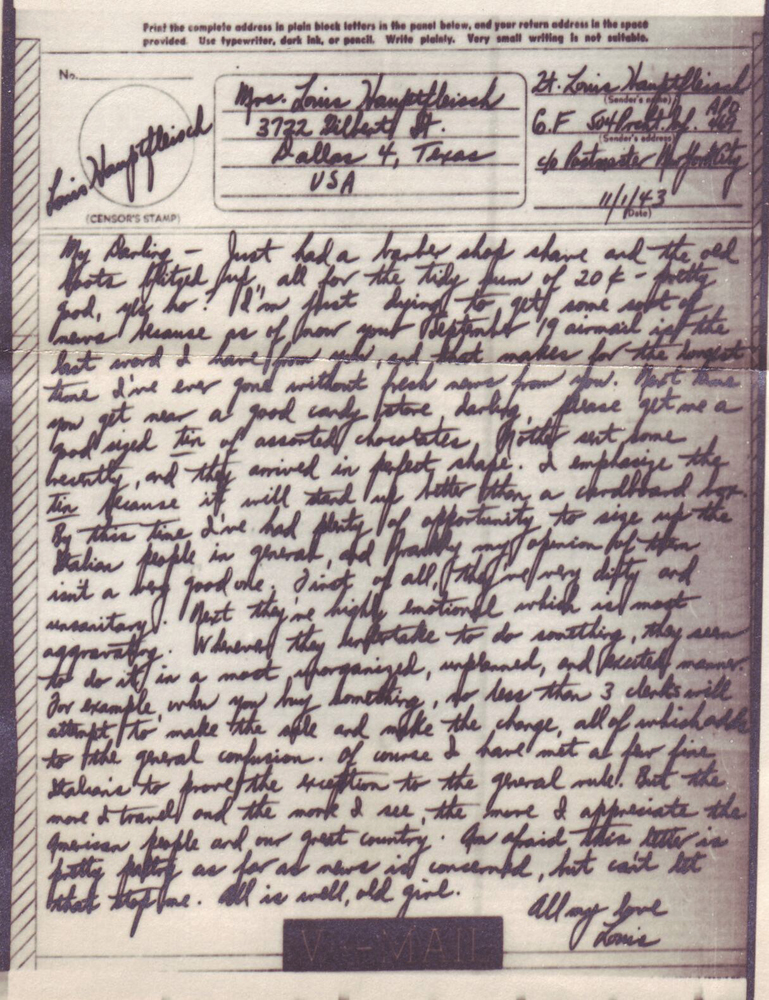 Print the complete address in plain block letters in the panel below, and your return address in the space
provided. Use typewriter, dark ink, or pencil. Write plainly. Very small writing is not suitable.
No.
Louis Hauptfleisch
(CENSOR'S STAMP)
Mrs. Louis Hauptfleisch
3722 Gilbert St.
Dallas 4, Texas
USA
Lt. Louis Hauptfleisch
(Sender's name)
G.F 504 Prcht. Inf. APO 469
(Sender's address)
c/o Postmaster New York City
11/1/43
(Date)
My Darling – Just had a barber shop shave and the old
boots blitzed up, all for the tidy sum of 20¢ – pretty
good, yes, no? I'm just dying to get some sort of
news because as of now your September 19 airmail is the
last word I have from you, and that makes for the longest
time I've ever gone without fresh news from you. Next time
you get near a good candy store, darling, please get me a
good sized tin of assorted chocolates. Mother sent some
recently, and they arrived in perfect shape. I emphasize the
tin because it will stand up better than a cardboard box.
By this time I've had plenty of opportunity to size up the
Italian people in general, and frankly my opinion of them
isn't a very good one. First of all, they're very dirty and
unsanitary. Next they're highly emotional which is most
aggravating. Whenever they undertake to do something, they seem
to do it in a most unorganized, unplanned, and excited manner.
For example, when you buy something, no less than 3 clerks will
attempt to make the sale and make the change, all of which adds
to the general confusion. Of course I have met a few fine
Italians to prove the exception to the general rule. But the
more I travel and the more I see, the more I appreciate the
American people and our great country. Am afraid this letter is
pretty paltry as far as news is concerned, but can't let
that stop me. All is well, old girl.
All my love
Louis
V···-MAIL